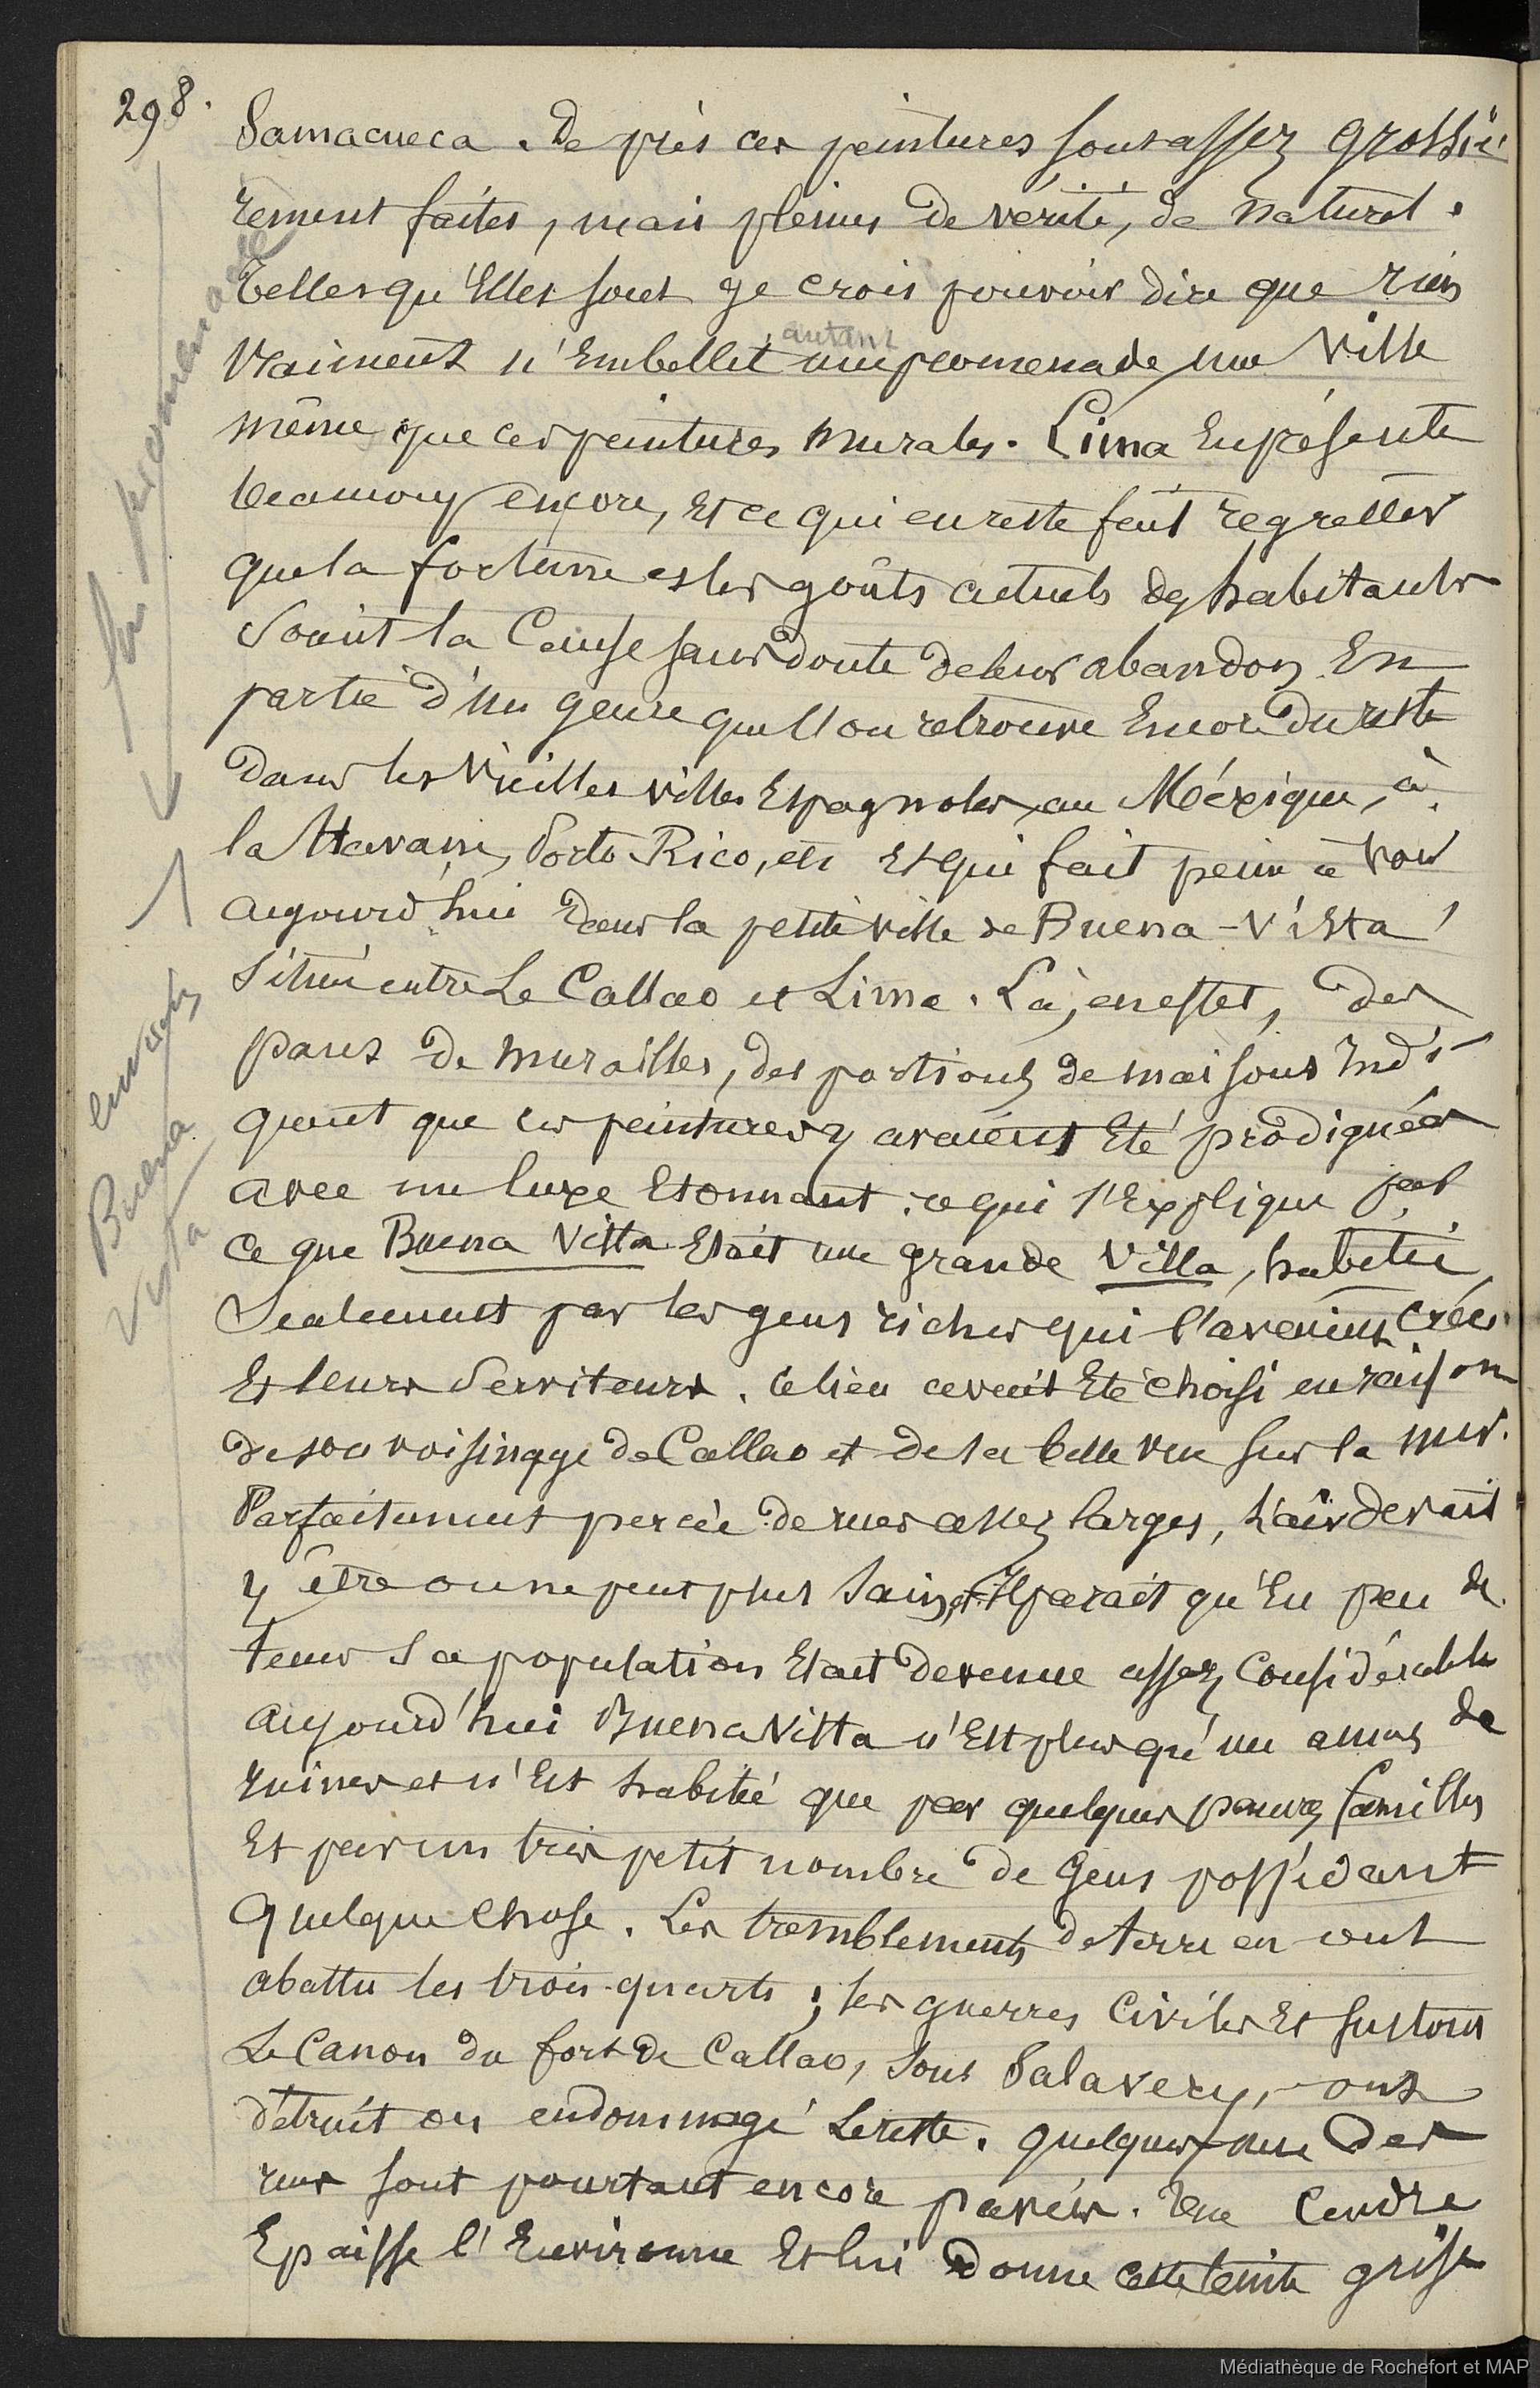 298.
Samacueca. De près ces peintures sont assez grossiè
rement faites, mais pleines de vérité, de naturel.
Telles qu'Elles sont je crois pouvoir dire que rien
Vraiment n'Embellit autant une promenade une Ville
même que ces peintures murales. Lima En présente
beaucoup encore, Et ce qui en reste fait regretter
que la fortune et les goûts actuels des habitants
Soient la Cause sans doute de leur abandon En
partie d'un genre que l'on retrouve Encore du reste
dans les Vieilles villes Espagnoles, au Méxique, à
la Havane, Porto-Rico, etc Et qui fait peine à voir
aujourd'hui dans la petite ville de Buena-Vista,
Située entre Le Callao et Lima. Là, en effet, des
pans de murailles, des portions de maisons Indi
quent que ces peintures y avaient Eté prodiguées
avec un luxe Etonnant; ce qui s'Explique par
ce que Buena Vista Etait une grande Villa, habitée
Seulement par les gens riches qui l'avaient Créée
Et leurs Serviteurs. Ce lieu avait Eté choisi en raison
de son voisinage de Callao et de sa belle vue sur la mer.
Parfaitement percée de rues assez larges, l'air devait
y être on ne peut plus Sain, et Il parait qu'En peu de
tems Sa population Etait devenue assez Considérable
aujourd'hui Buena Vista n'Est plus qu'un amas de
ruines et n'Est habité que par quelques pauvres familles
Et par un très petit nombre de Gens possédant
quelque chose. Les tremblements de terre en ont
abattu les trois-quarts; les guerres Civiles Et surtout
Le Canon du fort de Callao, Sous Salavery, ont
détruit ou endommagé Le reste. quelques-unes Des
rues sont pourtant encore pavées. Une Cendre
Epaisse l'Environne Et lui donne cette teinte grise
la promenade
environs
Buena
Vista
Médiathèque de Rochefort et MAP